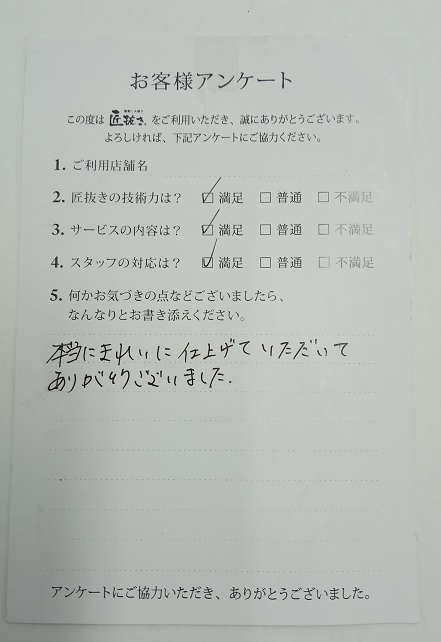 お客様アンケート
この度は 匠抜き をご利用いただき、誠にありがとうございます。
よろしければ、下記アンケートにご協力ください。
1. ご利用店舗名
2. 匠抜きの技術力は? ☑ 満足 □ 普通 □ 不満足
3. サービスの内容は? ☑ 満足 □ 普通 □ 不満足
4. スタッフの対応は? ☑ 満足 □ 普通 □ 不満足
5. 何かお気づきの点などございましたら、
なんなりとお書き添えください。
本当にきれいに仕上げていただいて
ありがとうございました.
アンケートにご協力いただき、ありがとうございました。